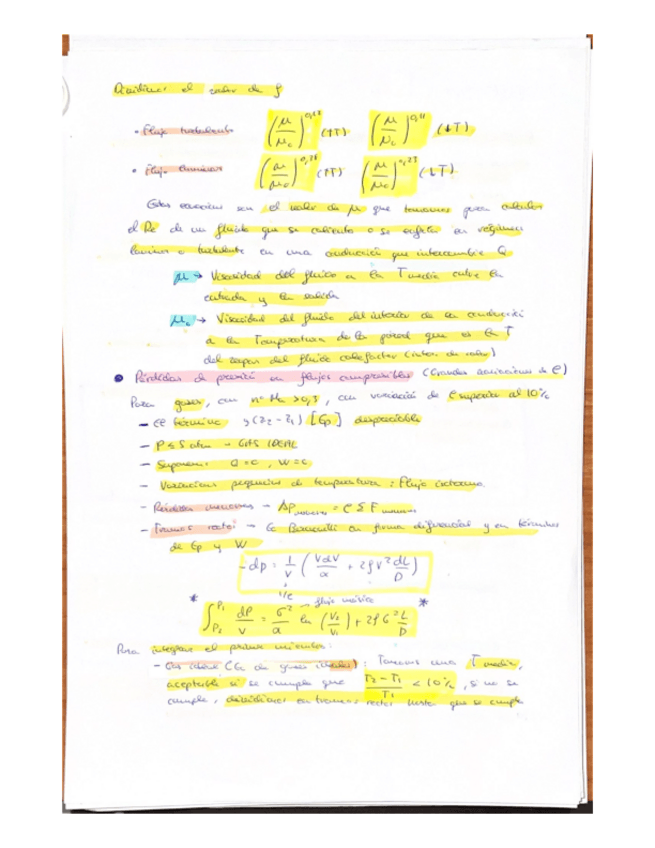 Dividimos el valor de f
• Flujo turbulento (μ/μc)^0,17 (↑T) (μ/μc)^0,11 (↓T)
• Flujo laminar (μ/μc)^0,38 (↑T) (μ/μc)^0,23 (↓T)
Estas ecuaciones son el valor de μ que tomamos para calcular
el Re de un fluido que se calienta o se enfría en régimen
laminar o turbulento en una conducción que intercambie Q
μ → Viscosidad del fluido a la T media entre la
entrada y la salida
μc → Viscosidad del fluido del interior de la conducción
a la Temperatura de la pared que es la T
del vapor del fluido calefactor (inter. de calor)
• Pérdidas de presión en flujos compresibles (Grandes variaciones de ρ)
Para gases, con nº Ma > 0,3, con variación de ρ superior al 10%
- El término g(z2 - z1) [Ep] despreciable
- P ≤ 5 atm → GAS IDEAL
- Suponemos Q = 0, W = 0
- Variaciones pequeñas de temperatura: Flujo isotermo
- Pérdidas menores → ΔP = ρ Σ F
- Tramos rectos → Ec Bernoulli en forma diferencial y en términos
de Ep y W
-dp = 1/V (VdV/α + 2fV² dL/D)
1/ρ
* ∫ dP/V = G²/α ln (V2/V1) + 2fG² L/D *
→ flujo másico
Para integrar el primer miembro:
- Gas ideal (Ec de gases ideales): Tomamos una T media,
aceptable si se cumple que T2 - T1/T1 < 10%, si no se
cumple, dividimos en tramos rectos hasta que se cumpla